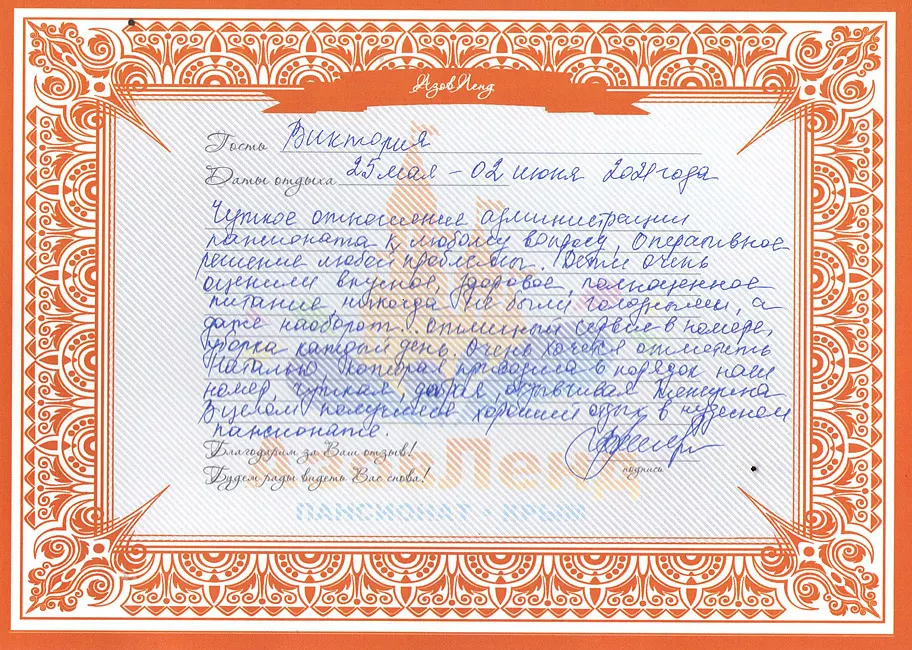 АзовЛенд
Гость Виктория
Даты отдыха 25 мая - 02 июня 2021 года
Чуткое отношение администрации
пансионата к любому вопросу. Оперативное
решение любой проблемы. Дети очень
оценили вкусное, здоровое, полноценное
питание, никогда не были голодными, а
даже наоборот. Отличный сервис в номере,
уборка каждый день. Очень хочется отметить
Наталью, которая приводила в порядок наш
номер, чуткая, добрая, отзывчивая женщина
В целом получился хороший отдых в чудесном
пансионате.
Благодарим за Ваш отзыв!
подпись
Будем рады видеть Вас снова!
АзовЛенд
ПАНСИОНАТ - КРЫМ